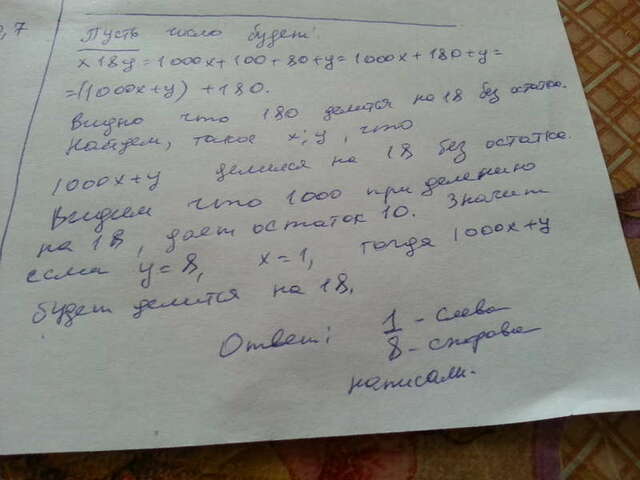 0,7
Пусть число будет:
x 18 y = 1000x + 100 + 80 + y = 1000x + 180 + y =
= (1000x + y) + 180.
Видно что 180 делится на 18 без остатка.
Найдем, такое x; y, что
1000x + y делился на 18 без остатка.
Видем что 1000 при деление
на 18, дает остаток 10. Значит
если y = 8, x = 1, тогда 1000x + y
будет делится на 18.
Ответ: 1 - слева
8 - справа
написали.